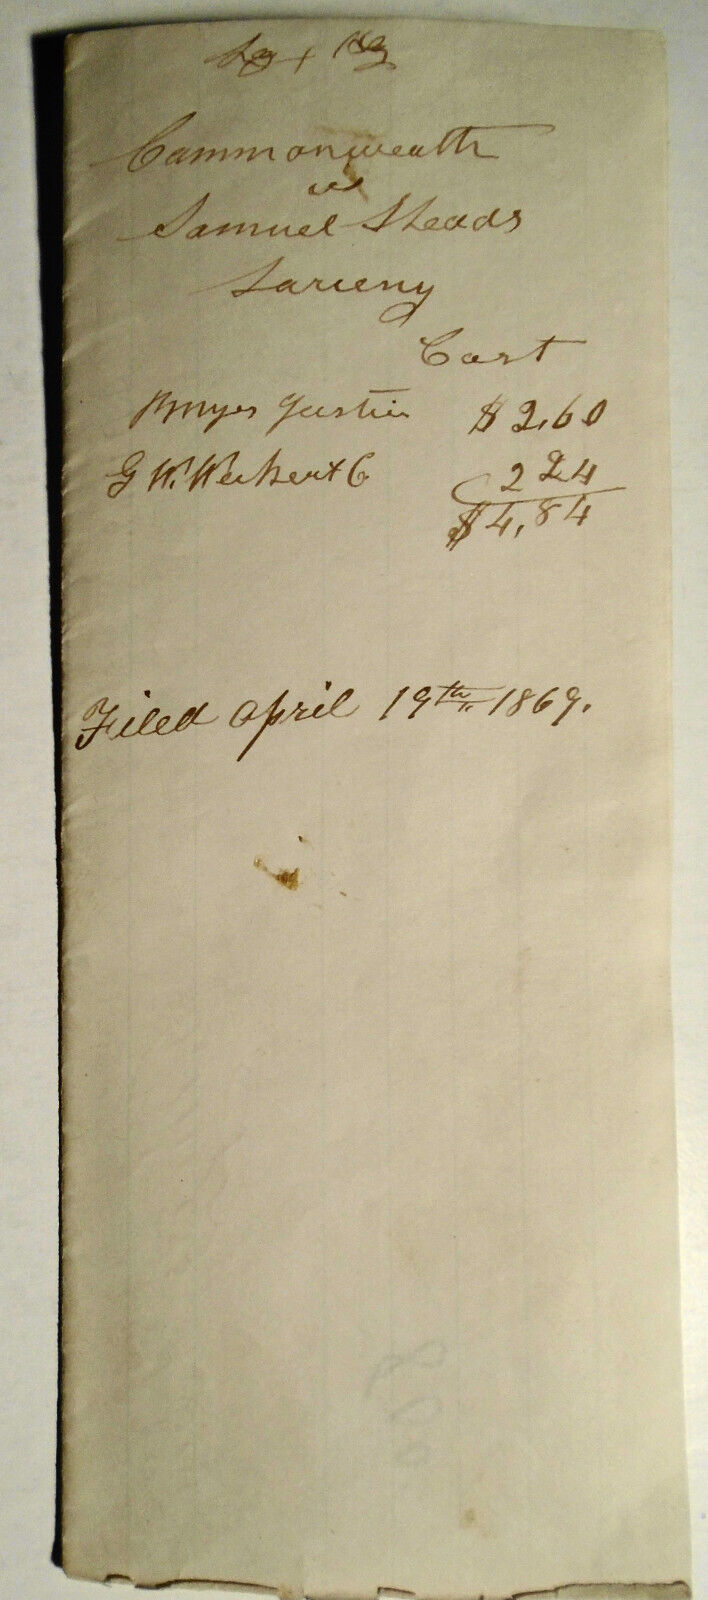 Commonwealth
vs
Samuel Sheads
Larceny
Cost
Justice $ 2,60
G W. Weikert C 2 24
$ 4,84
Filed April 19th. 1869.